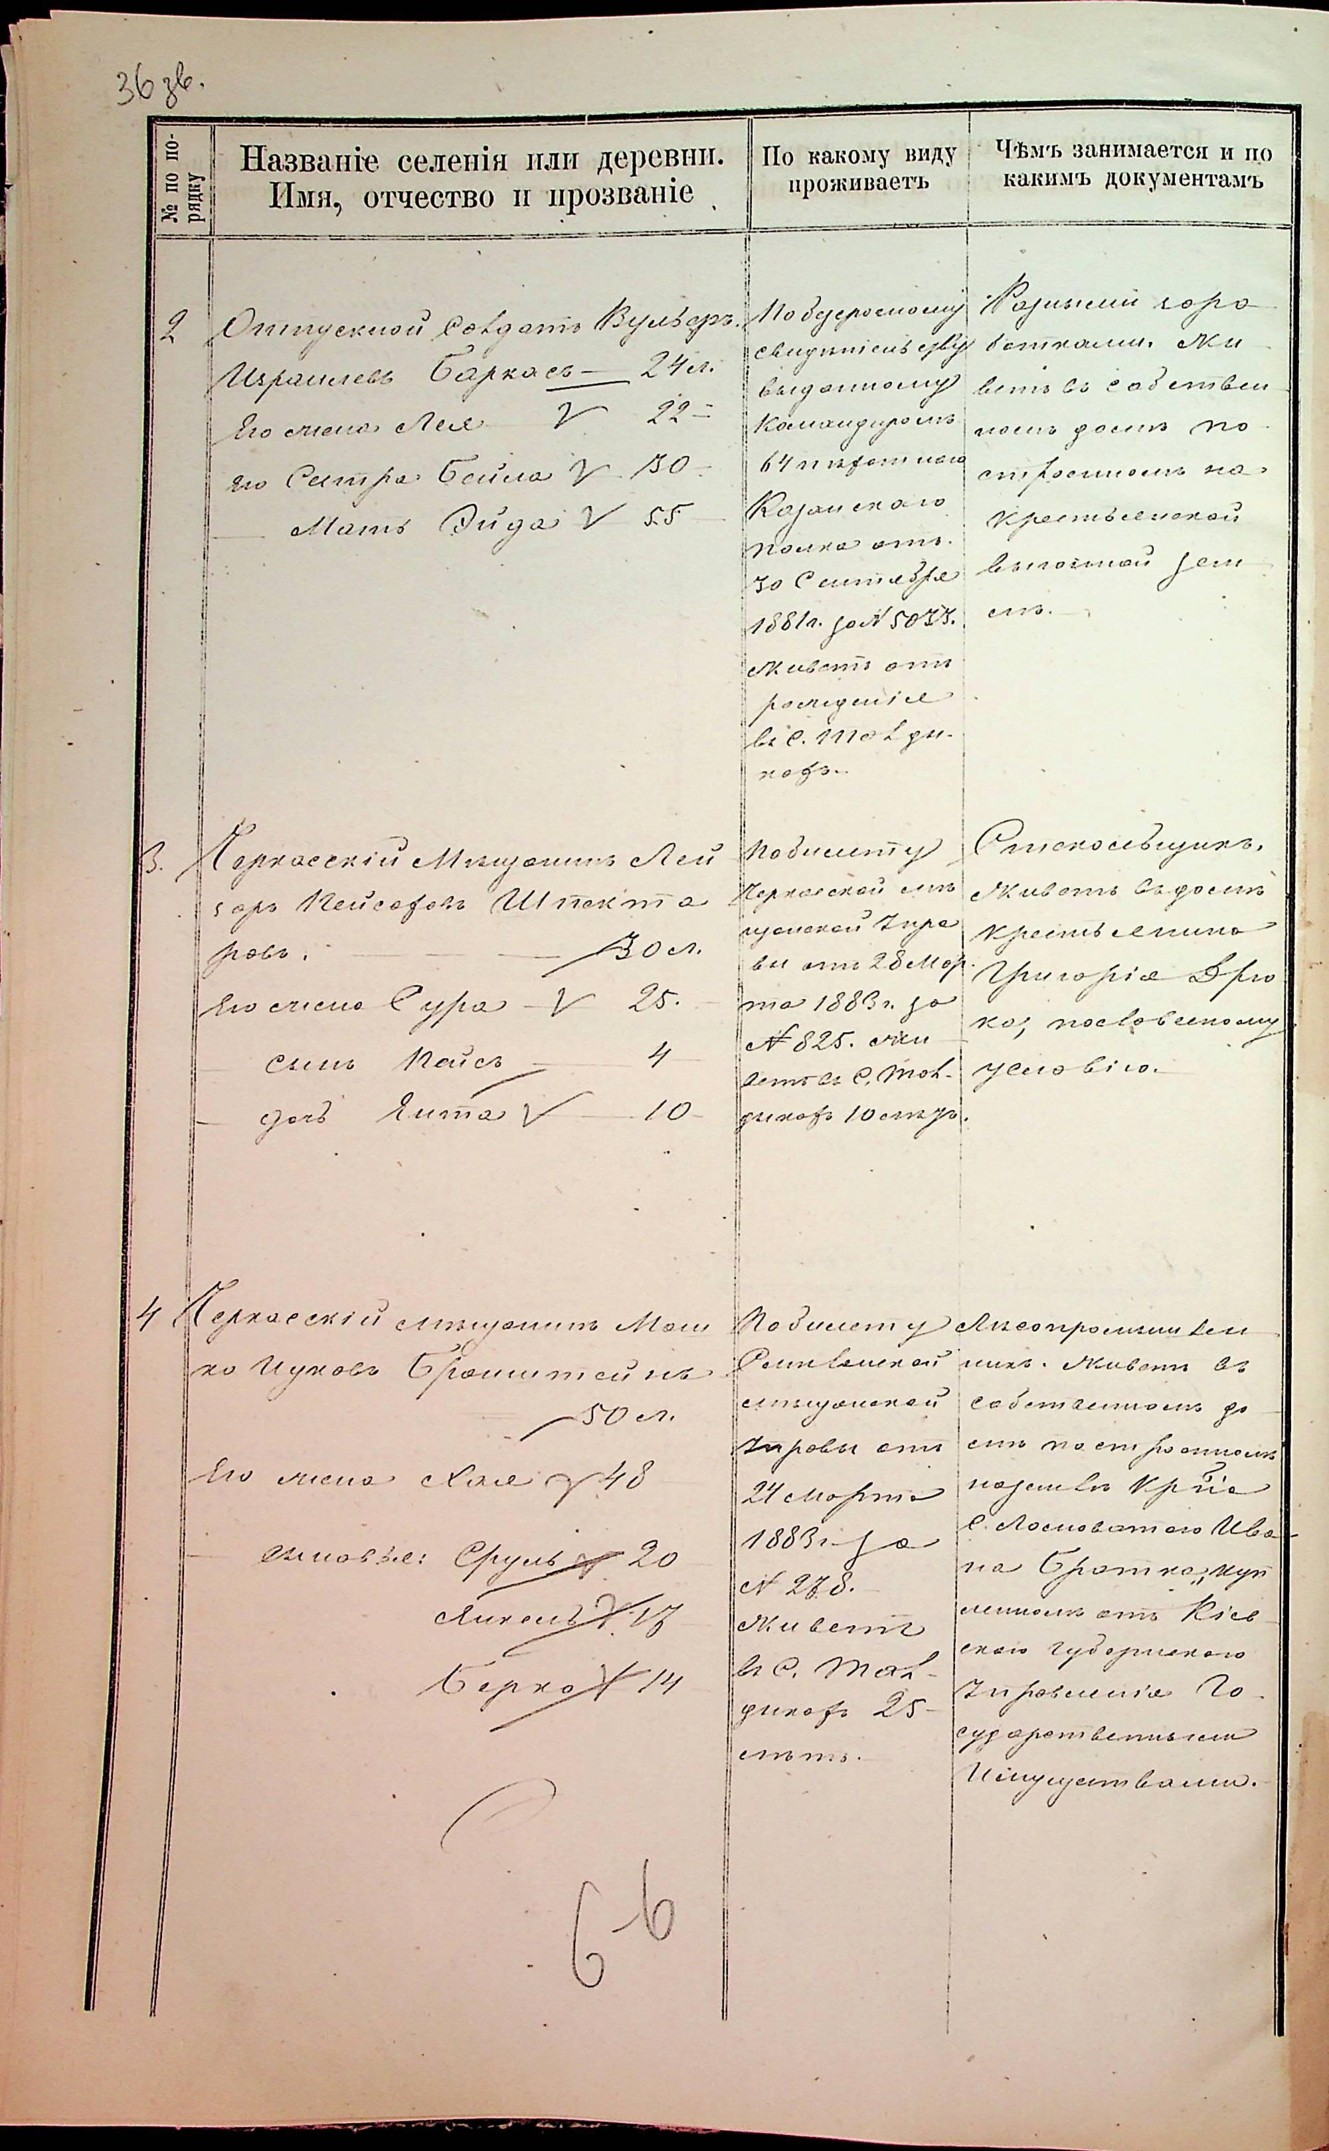 36 зв.
№ по по-
рядку
Названіе селенія или деревни.
Имя, отчество и прозваніе
По какому виду
проживаетъ
Чѣмъ занимается и по
какимъ документамъ
2
Отпускной Солдатъ Вульфъ
Израилевъ Баркасъ — 24 л.
Его жена Лея V 22 –
его Сестра Бейла V 30 –
— Мать Эйда V 55 —
По безсрочному
свидѣтельству
выданному
Командиромъ
64 пѣхотнаго
Казанскаго
полка отъ
30 Сентября
1881 г. за № 5033.
Живетъ отъ
рожденія
въ С.
Разными зара
ботками. Жи
ветъ въ собствен
номъ домѣ по
строенномъ на
Крестьянской
выгонной зем
лѣ.
3.
Черкасскій Мѣщанинъ Лей
заръ Пейсаховъ Шпекто
ровъ. — 30 л.
Его жена Сура – V 25. –
— сынъ Пейсъ — 4 –
— дочь Гитта V — 10 –
По билету
Черкасской мѣ
щанской Упра
вы отъ 28 Мар
та 1883 г. за
№ 825. Жи
ветъ въ С.
10 лѣтъ.
Стекольщикъ.
Живетъ въ домѣ
Крестьянина
Григорія
по словесному
условію.
4
Черкасскій мѣщанинъ Мош
ко Ицковъ Бронштейнъ
— 50 л.
Его жена Хая V 48
— сыновья: Сруль V 20
Янкель V 17
Берко V 14
По билету
мѣщанской
Управы отъ
24 Марта
1883 г. за
№ 278.
Живетъ
въ С.
25 –
лѣтъ.
Лѣсопромышлен
никъ. Живетъ въ
собственномъ до
мѣ построенномъ
на землѣ Кр–на
с. Ива
на Братка, куп
ленномъ отъ Кіев
скаго Губернскаго
Управленія Го
сударственными
Имуществами.
6 6